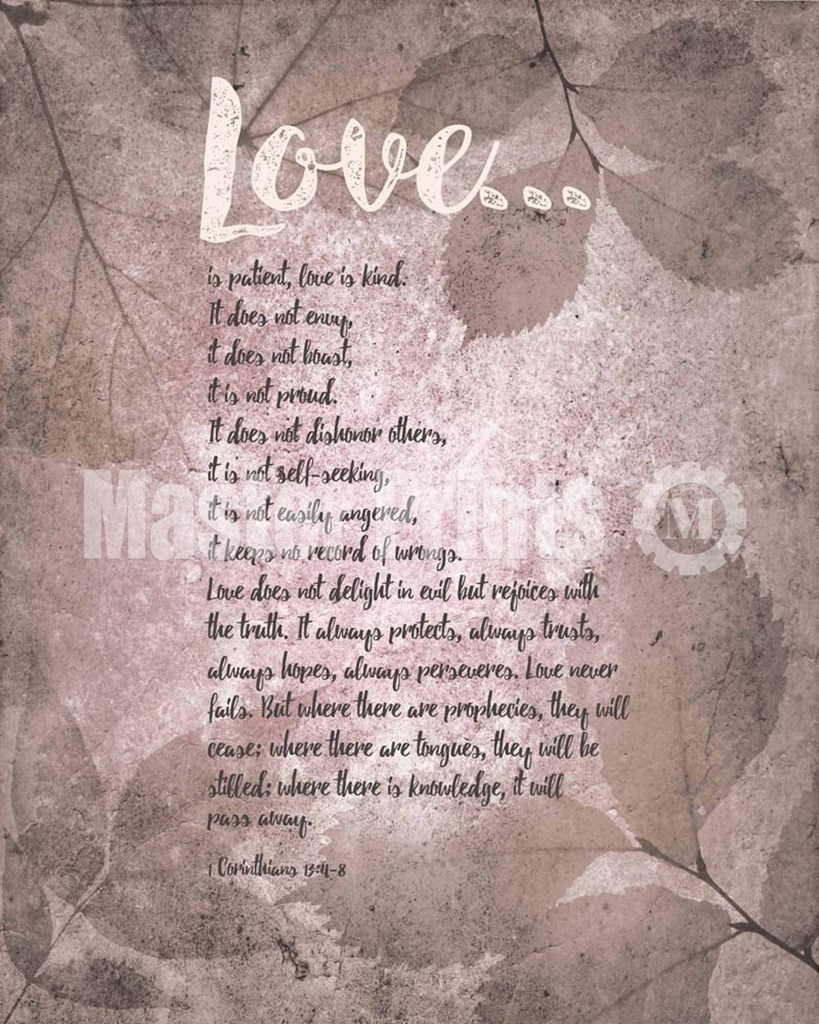 Love...
is patient, love is kind.
It does not envy,
it does not boast,
it is not proud.
It does not dishonor others,
it is not self-seeking,
Master Prints M
it is not easily angered,
it keeps no record of wrongs.
Love does not delight in evil but rejoices with
the truth. It always protects, always trusts,
always hopes, always perseveres. Love never
fails. But where there are prophecies, they will
cease; where there are tongues, they will be
stilled; where there is knowledge, it will
pass away.
1 Corinthians 13:4-8